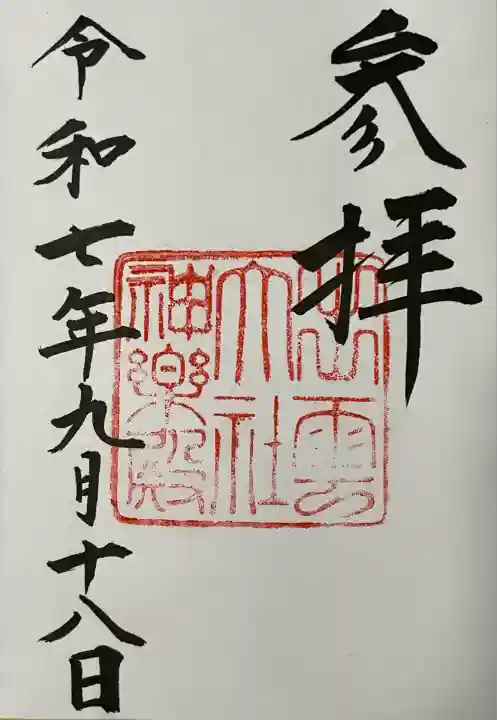 参拝
出雲
大社
神楽殿
令和七年九月十八日